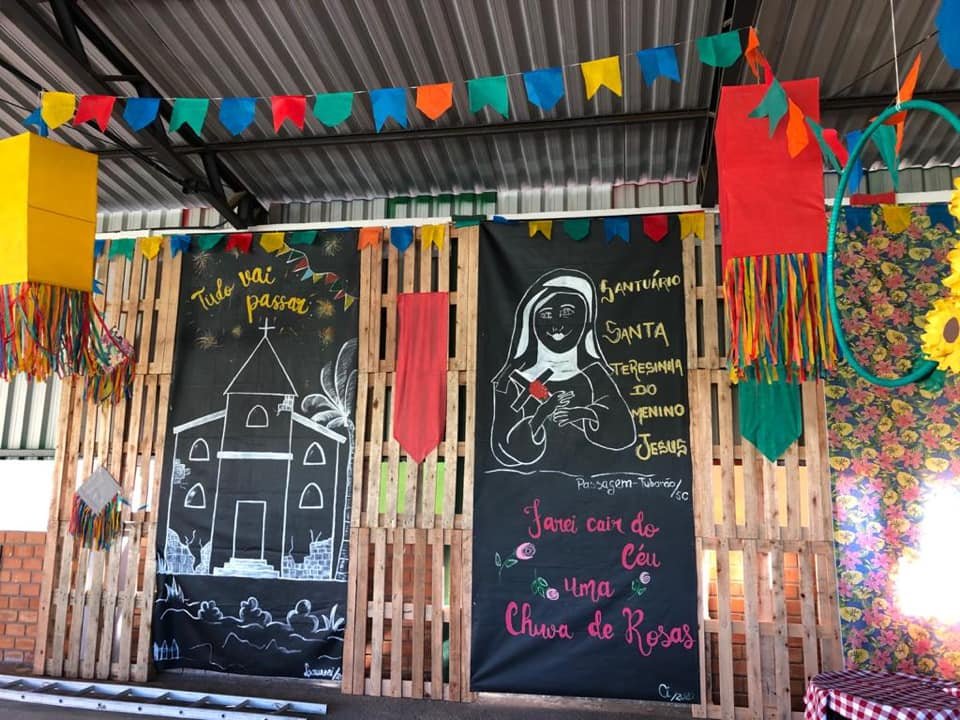 Tudo vai
passar!
SANTUÁRIO
SANTA
TERESINHA
DO
MENINO
JESUS
Passagem-Tubarão/SC
Farei cair do
Céu
uma
Chuva de Rosas